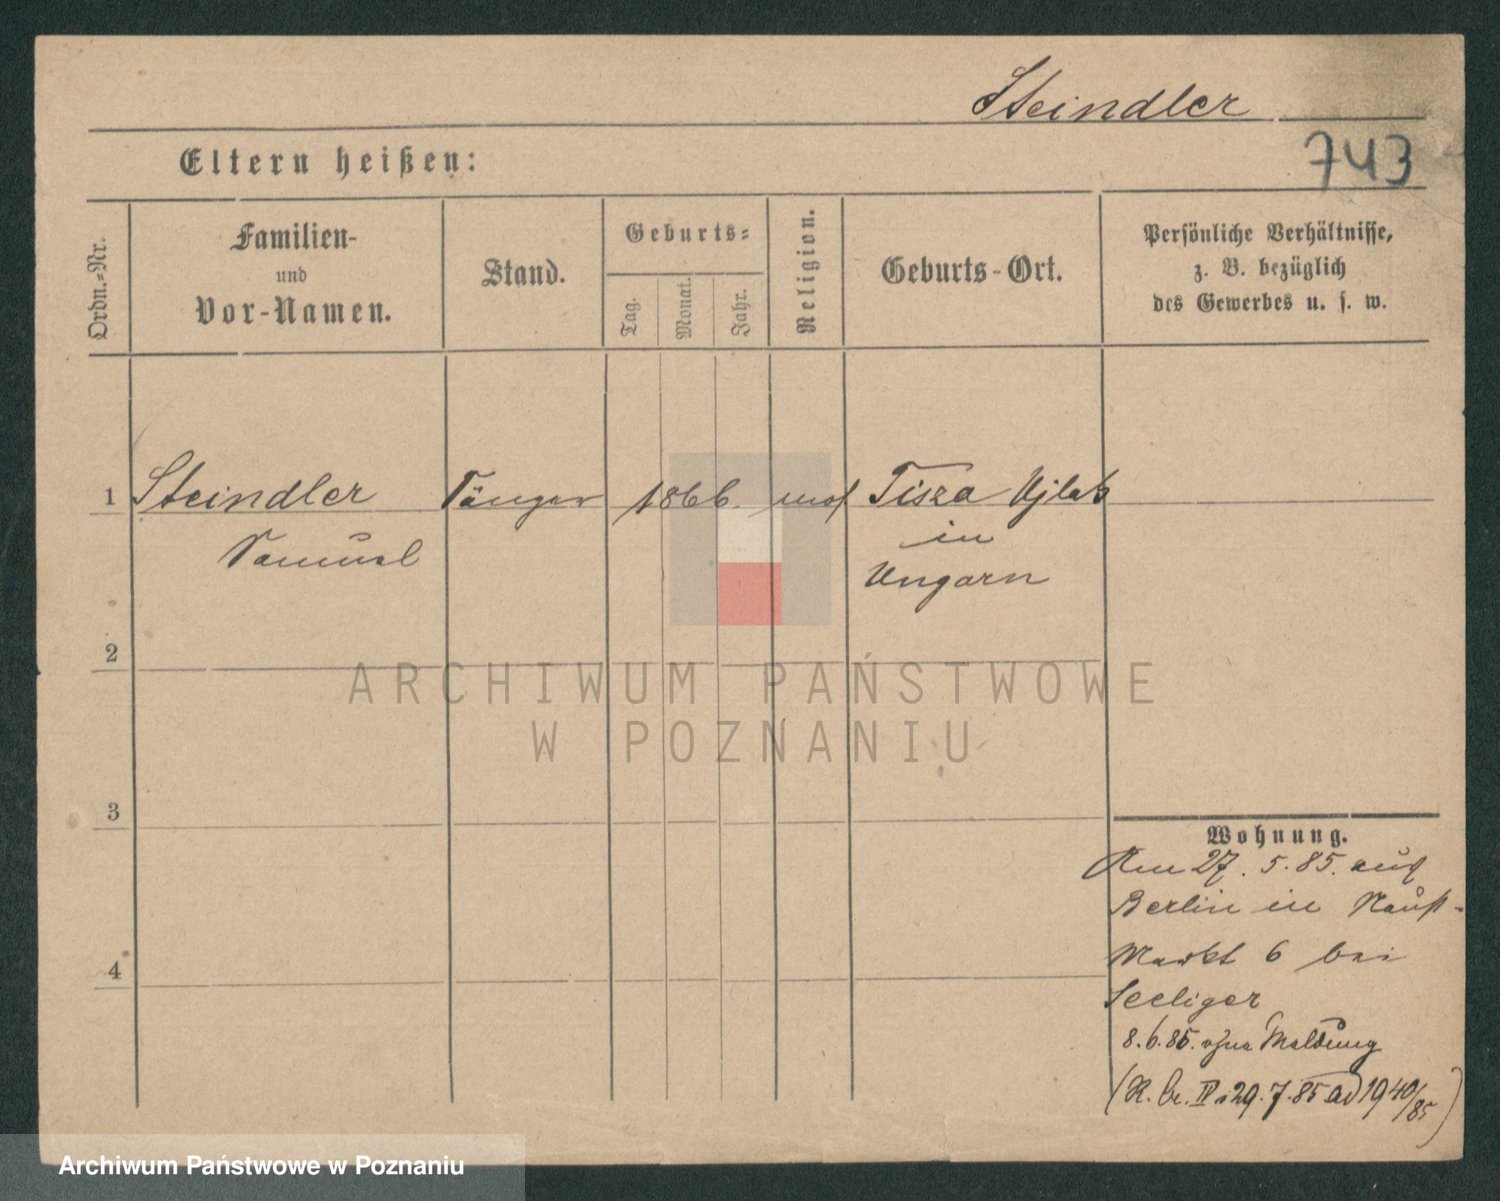 Steindler
743
Eltern heißen:
Ordn.-Nr.
Familien-
und
Vor-Namen.
Stand.
Geburts-
Tag.
Monat.
Jahr.
Religion.
Geburts-Ort.
Persönliche Verhältnisse,
z. B. bezüglich
des Gewerbes u. s. w.
1 Steindler Sänger 1866. mos Tisza Ujlak
Samuel in
Ungarn
2
3
4
Wohnung.
Am 27. 5. 85. aus
Berlin in
Markt 6 bei
Seeliger
8.6.85. ohne Meldung
29.7.85 ad 1940/85)
ARCHIWUM PAŃSTWOWE
W POZNANIU
Archiwum Państwowe w Poznaniu